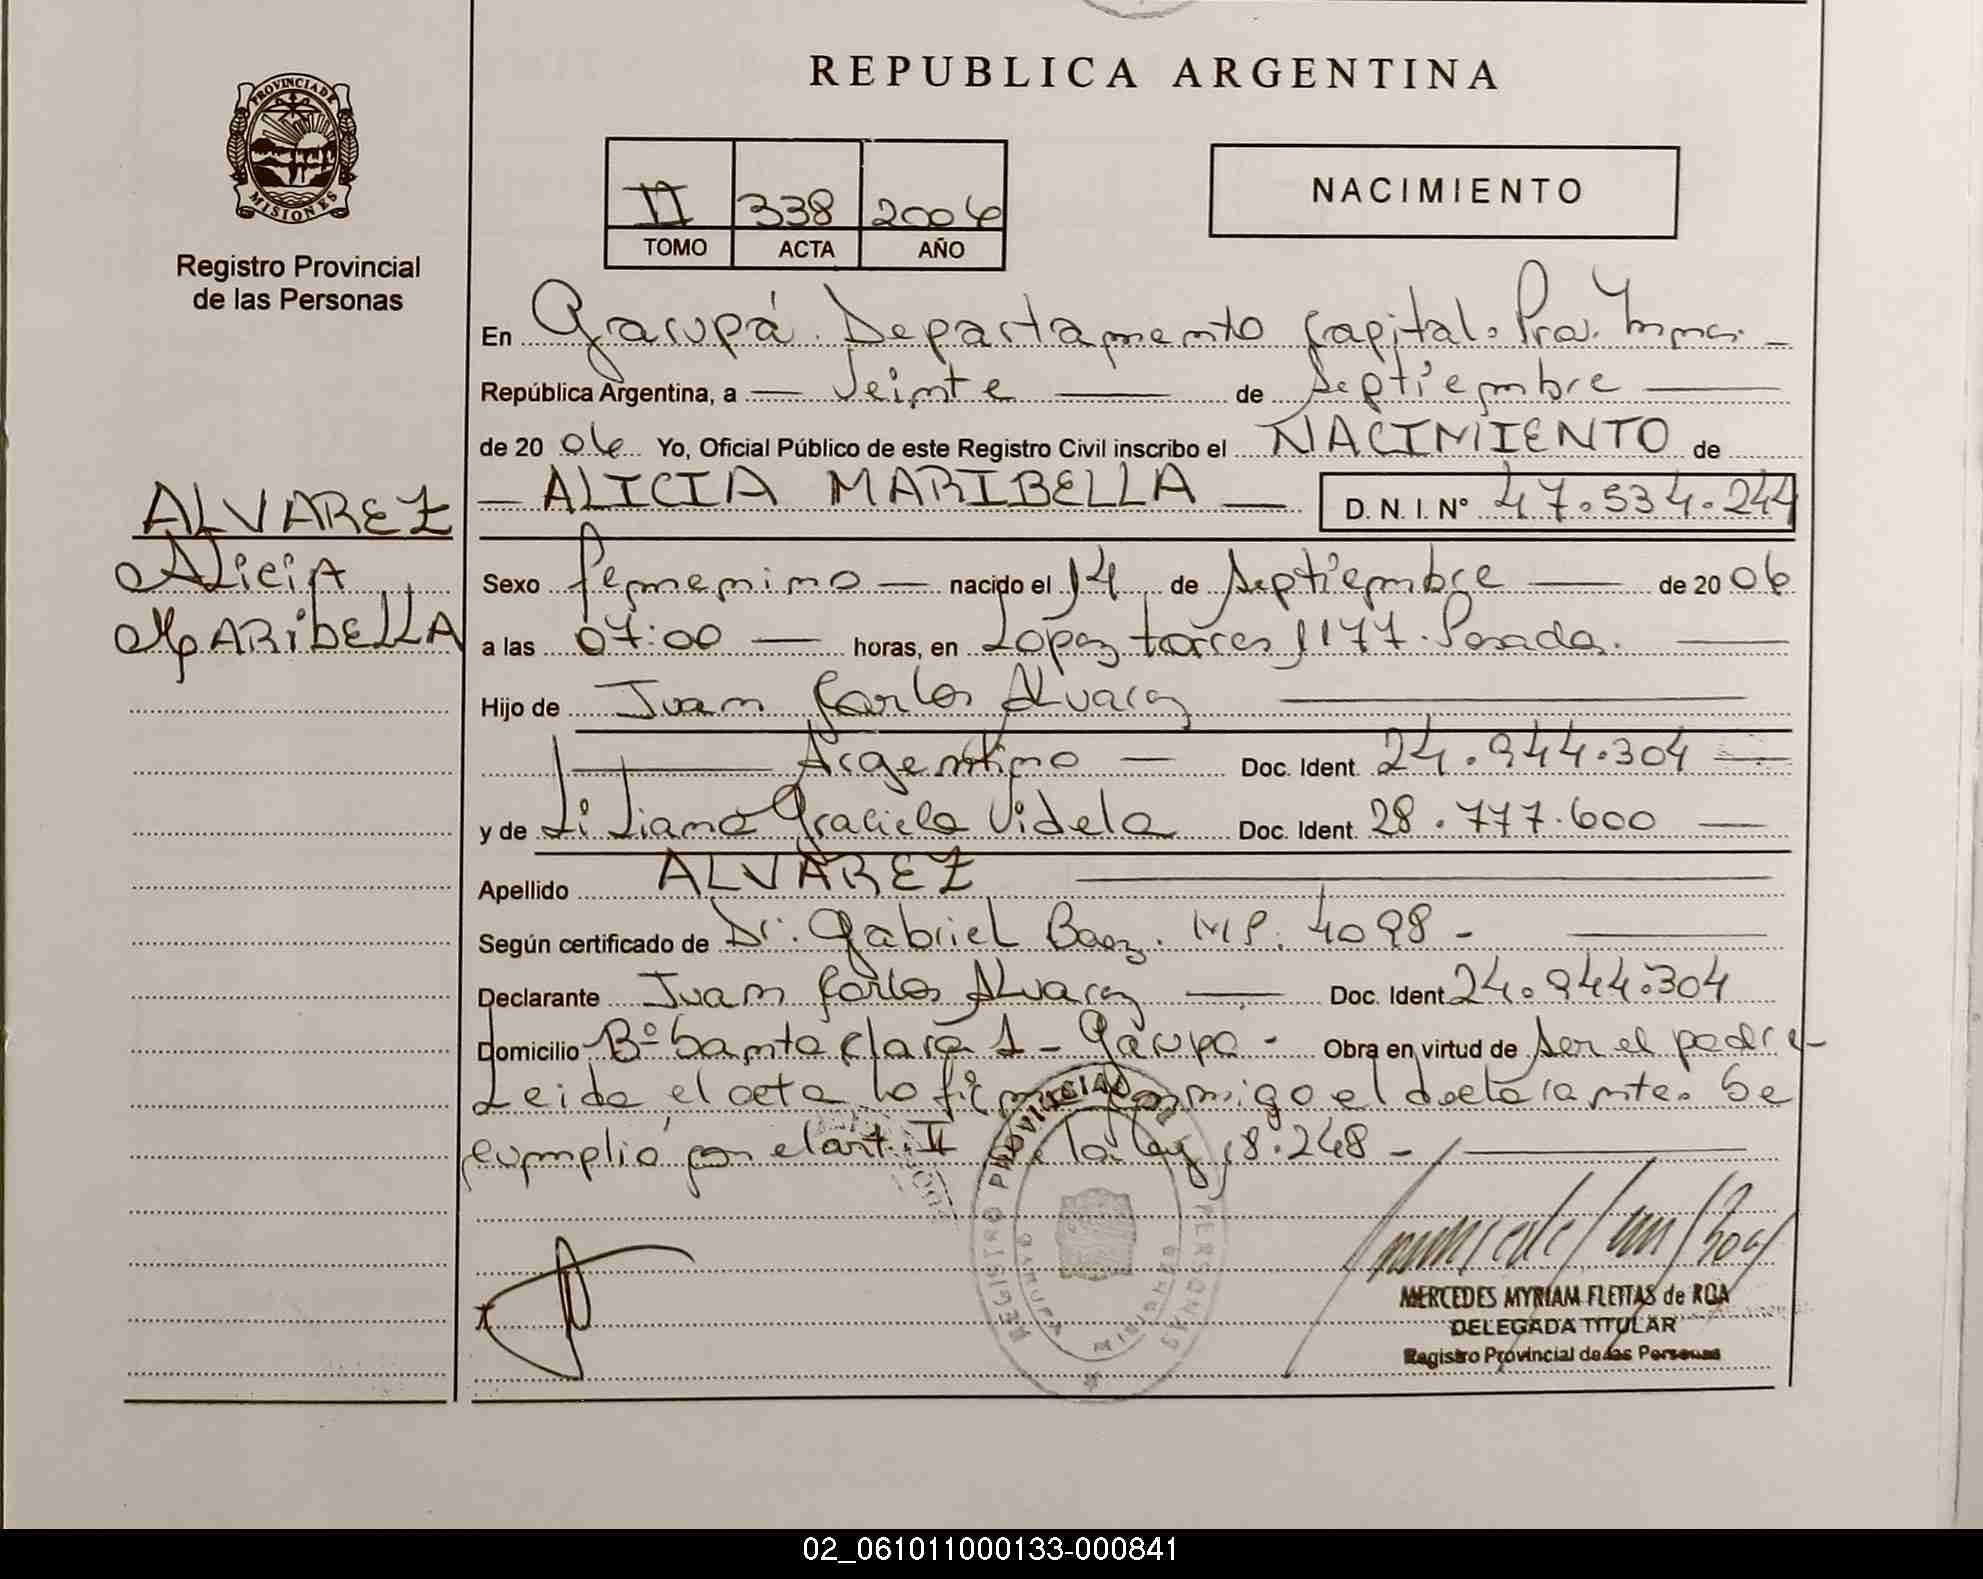 REPUBLICA ARGENTINA
PROVINCIA DE MISIONES
Registro Provincial
de las Personas
II 338 2006
TOMO ACTA AÑO
NACIMIENTO
En Garupá. Departamento Capital. Prov. Mnes. —
República Argentina, a — Veinte — de Septiembre —
de 20 06 Yo, Oficial Público de este Registro Civil inscribo el NACIMIENTO de
— ALICIA MARIBELLA — D. N. I. Nº 47.534.244
ALVAREZ
Alicia
MARiBELLA
Sexo femenino — nacido el 14 de Septiembre — de 20 06
a las 07:00 — horas, en Lopez torres 1177. Posadas. —
Hijo de Juan Carlos Alvarez —
— Argentino — Doc. Ident. 24.944.304 —
y de Liliana Graciela Videla Doc. Ident. 28.777.600 —
Apellido ALVAREZ —
Según certificado de Dr. Gabriel Baez. MP. 4098 - —
Declarante Juan Carlos Alvarez — Doc. Ident. 24.944.304
Domicilio Bº Santa Clara 1 - Garupa - Obra en virtud de ser el padre -
Leida el acta la firma conmigo el declarante. Se
cumplió con el art. II de la ley 18.248 - —
REGISTRO PROVINCIAL DE LAS PERSONAS
GARUPA MISIONES
MERCEDES MYRIAM FLEITAS de ROA
DELEGADA TITULAR
Registro Provincial de las Personas
02_061011000133-000841